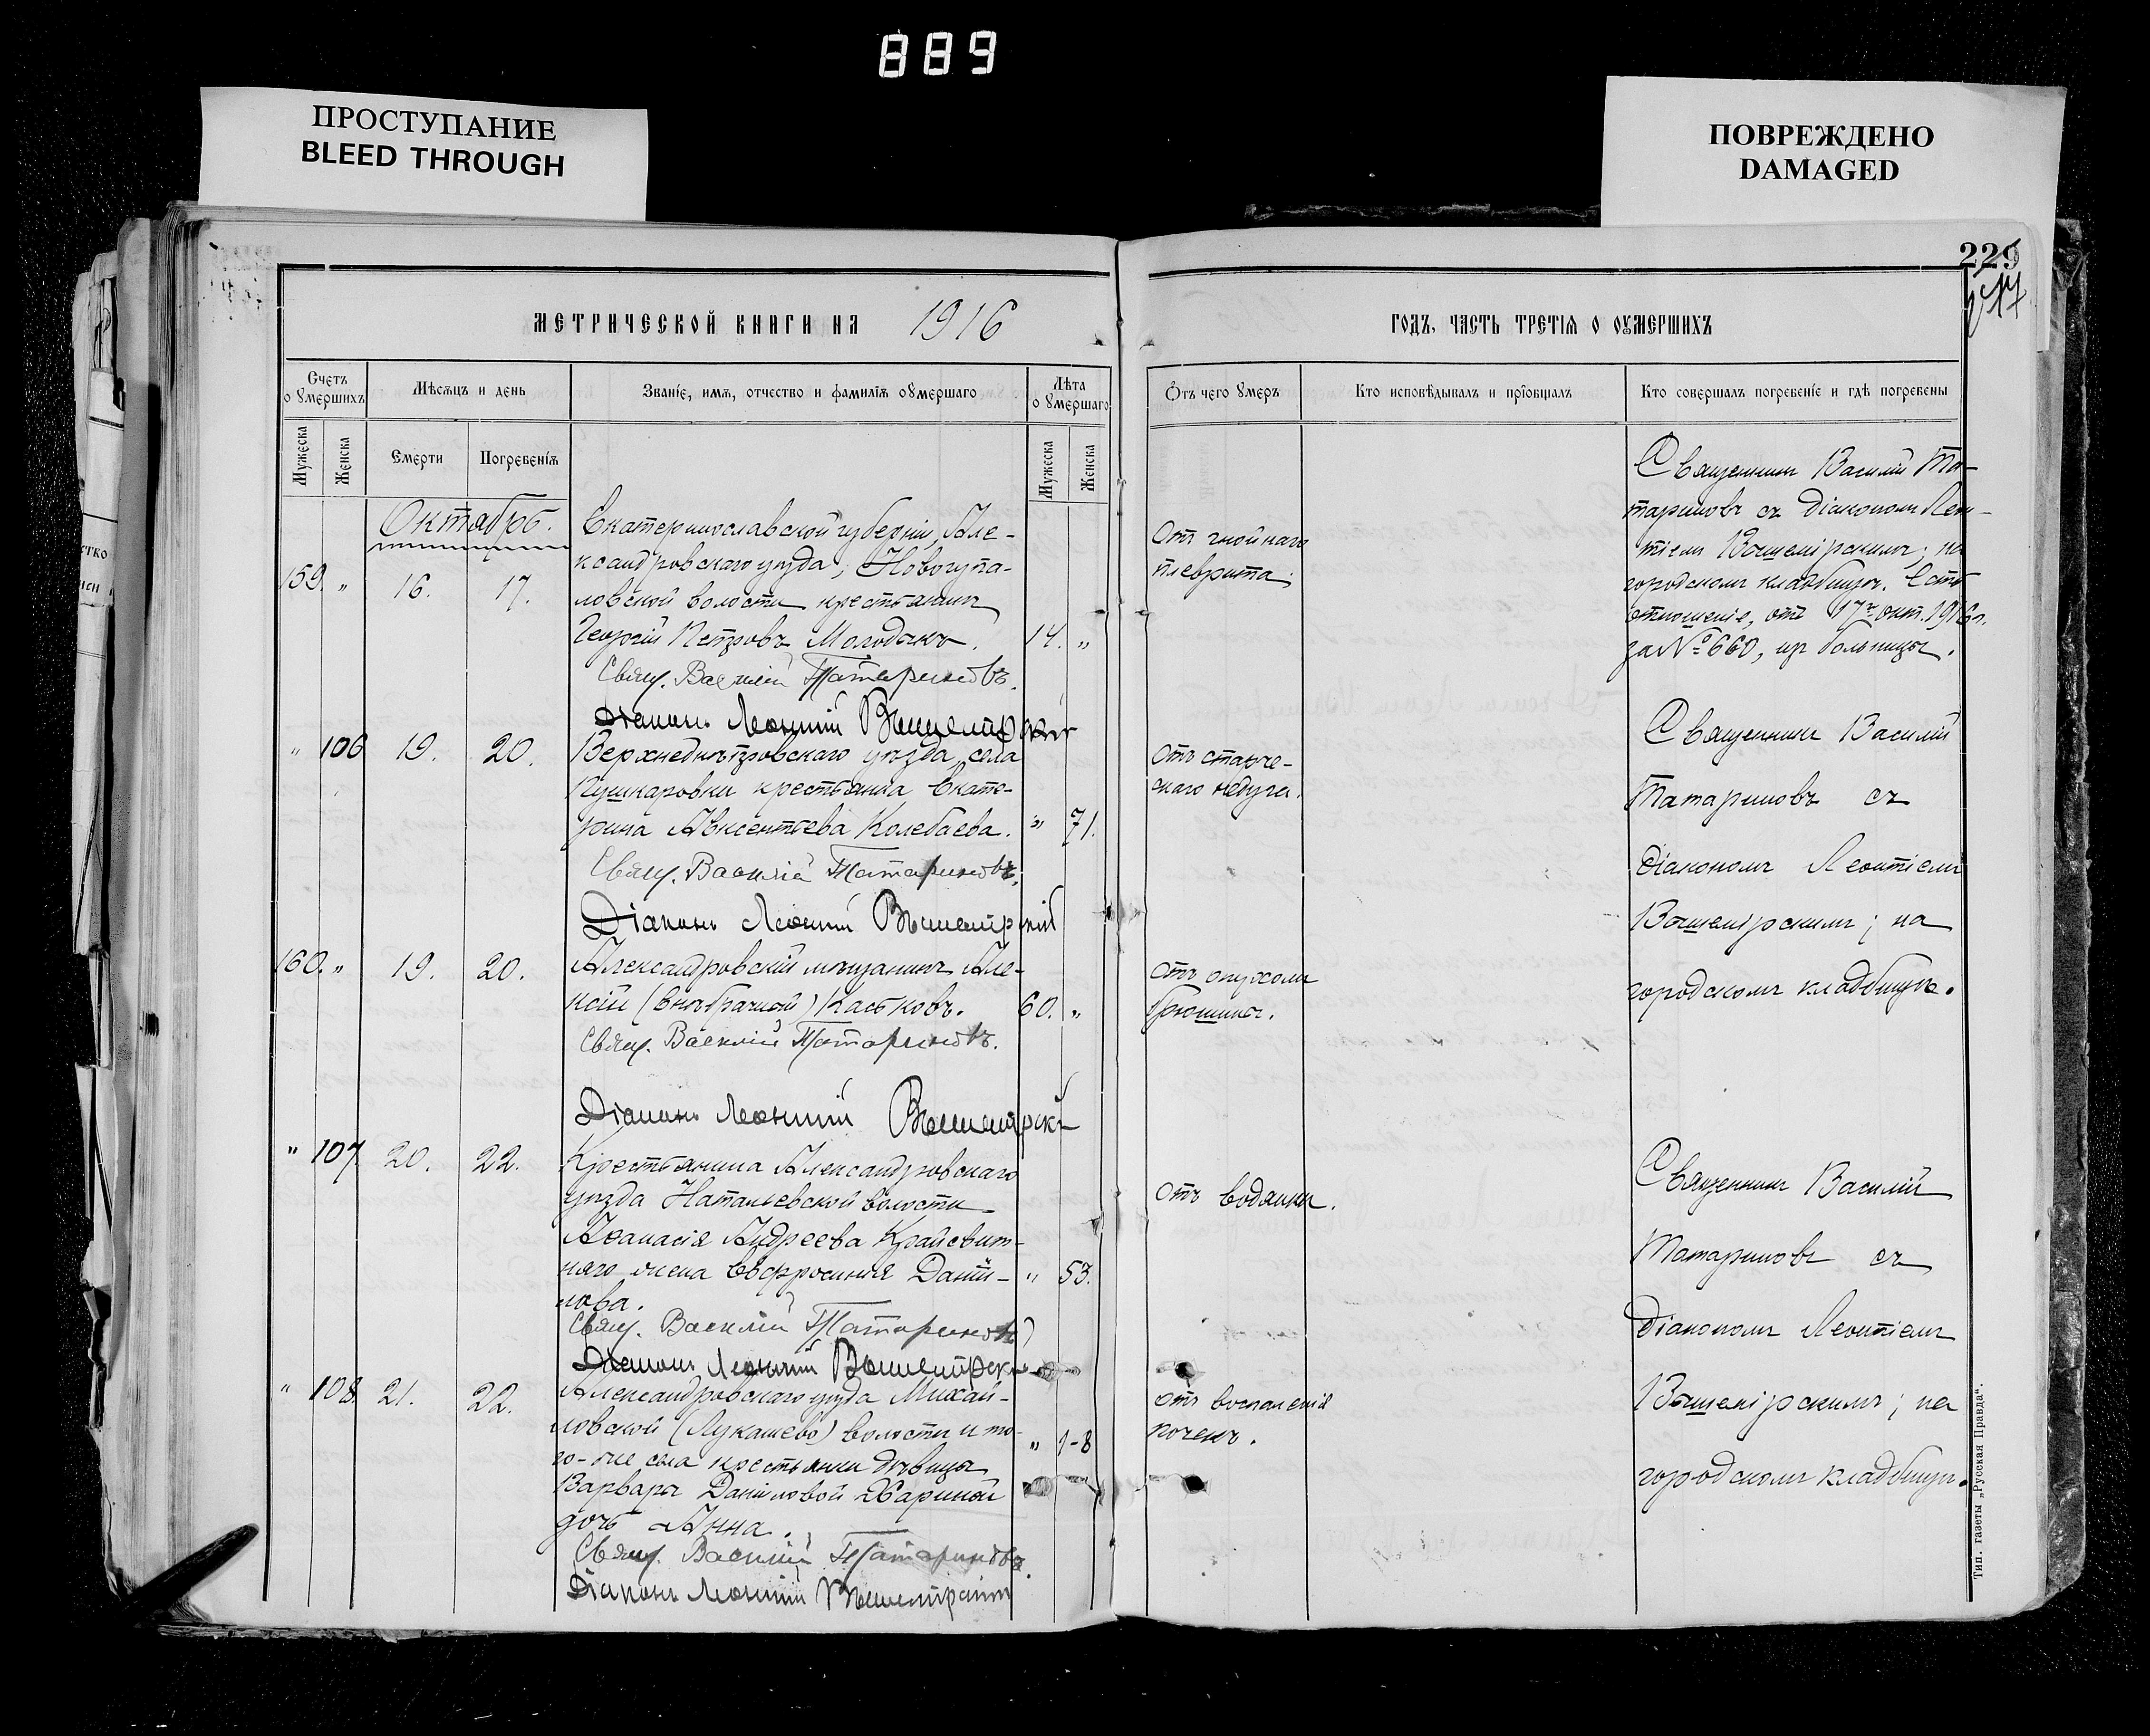 889
ПРОСТУПАНИЕ
BLEED THROUGH
ПОВРЕЖДЕНО
DAMAGED
229
МЕТРИЧЕСКОЙ КНИГИ НА 1916
ГОДЪ, ЧАСТЬ ТРЕТІѦ О ОУМЕРШИХЪ
Счетъ о Умершихъ
Мѣсѧцъ и день
Званіе, имѧ, отчество и фамиліѧ оУмершаго
Лѣта оУмершаго
Мужеска
Женска
Смерти
Погребеніѧ
Мужеска
Женска
Отъ чего Умеръ
Кто исповѣдывалъ и пріобщалъ
Кто совершалъ погребеніе и гдѣ погребены
Октябрь.
159. " 16. 17.
Екатеринославской губерніи, Але-
ксандровскаго уѣзда, Новогупа-
ловской волости крестьянинъ
Георгій Петровъ Молодыкъ. 14. "
Свящ. Василій Татариновъ.
Діаконъ Леонтій
Отъ гнойнаго
плеврита.
Священникъ Василій Та-
тариновъ съ діакономъ Леон-
тіемъ Вышемірскимъ; на
городскомъ кладбищѣ. Есть
отношеніе, отъ 17го окт. 1916 г.
за № 660, из больницы.
" 106 19. 20.
Верхнеднѣпровскаго уѣзда села
Пушкаровки крестьянка Екате-
рина Авксентьева Колебаева. " 71.
Свящ. Василій Татариновъ.
Діаконъ Леонтій
Отъ старче-
скаго недуга.
Священникъ Василій
Татариновъ съ
діакономъ Леонтіемъ
Вышемірскимъ; на
городскомъ кладбищѣ.
160. " 19. 20.
Александровскій мѣщанинъ Але-
ксій (внѣбрачный) Каськовъ. 60. "
Свящ. Василій Татариновъ.
Діаконъ Леонтій
отъ опухоли
брюшины.
" 107 20. 22.
Крестьянина Александровскаго
уѣзда Натальевской волости
Аѳанасія Андреева
жена Евфросинія Дании- " 53.
лова.
Свящ. Василій Татариновъ
Діаконъ Леонтій
отъ водянки.
Священникъ Василій
Татариновъ съ
діакономъ Леонтіемъ
Вышемірскимъ; на
городскомъ кладбищѣ.
" 108. 21. 22.
Александровскаго уѣзда Михай-
ловской (Лукашево) волости и то-
го-же села крестьянки дѣвицы " 1-8
Варвары Даниловой
дочь Анна.
Свящ. Василій Татариновъ.
Діаконъ Леонтій
отъ воспаленія
почекъ.
Тип. газеты „Русская Правда“.